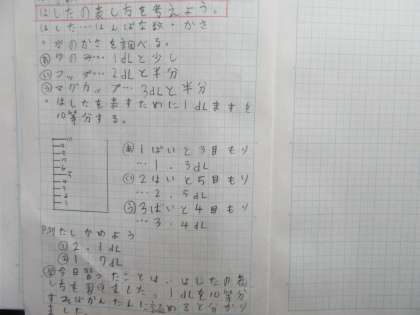 はしたの表し方を考えよう。
はした…はんぱな数・かさ
のかさを調べる。
あ 1dLと少し
い コップ…2dLと半分
う マグカップ…3dLと半分
・はしたを表すために1dLますを
10等分する。
あ 1ぱいと3目もり
…1.3dL
い 2はいと5目もり
…2.5dL
う 3ばいと4目もり
…3.4dL
たしかめよう
① 2.1dL
② 1.7dL
今日習ったことは、はしたの表
し方を習いました。1dLを10等分
すればかんたんに とが分かり
ました。